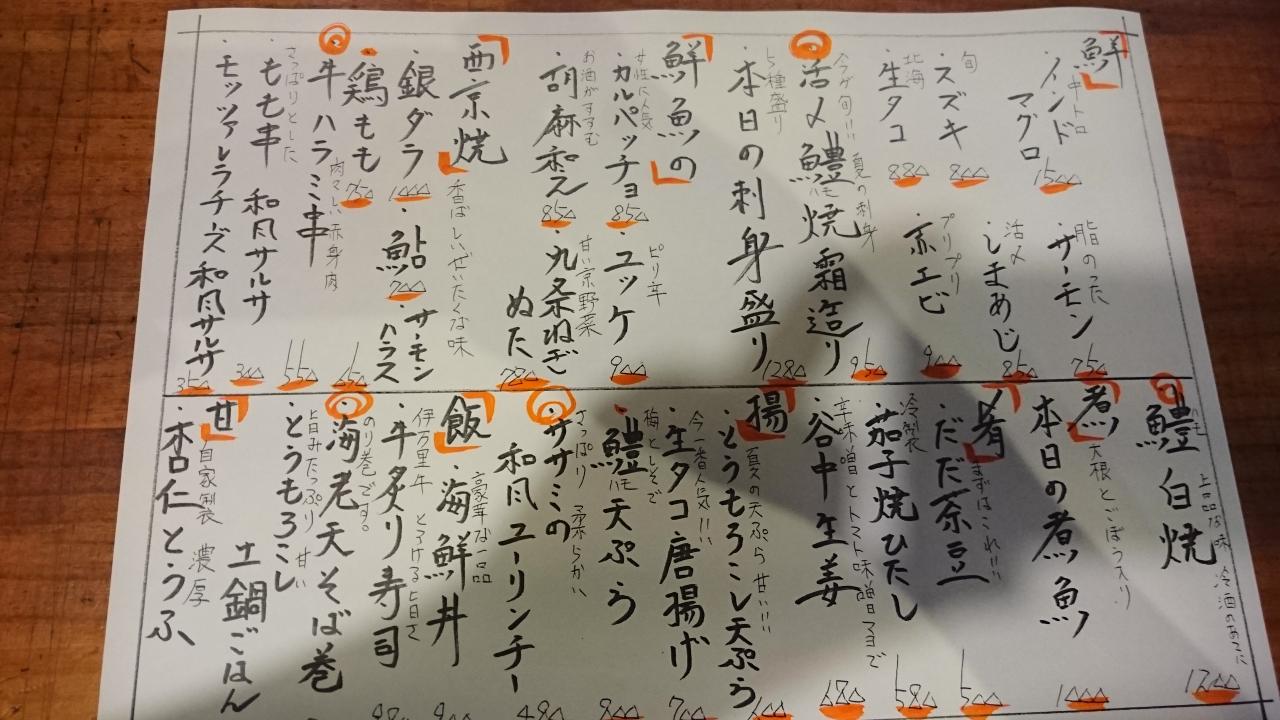 鮮
中トロ
・インドマグロ
1500
脂のった
・サーモン
750
旬
・スズキ
800
活〆
・しまあじ
850
北海
・生タコ
880
プリプリ
・赤エビ
900
今が旬!!! 夏の刺身
・活〆鱧焼霜造り
ハモ
950
5種盛り
・本日の刺身盛り
1280
鮮魚の
女性に人気
・カルパッチョ
850
ピリ辛
・ユッケ
900
お酒がすすむ
・胡麻和え
850
甘い京野菜
・九条ねぎ
ぬた
780
西京焼
香ばしいぜいたくな味
・銀ダラ
1000
・サーモン
ハラス
650
・鶏もも
750
・鮎
700
肉々しい赤身肉
・牛ハラミ串
550
さっぱりとした
・もも串 和風サルサ
300
・モッツァレラチーズ和風サルサ
350
ハモ
・鱧白焼
上品な味 冷酒のあてに
1200
煮
大根とごぼう入り
・本日の煮魚
1000
肴
まずはこれ!!!
・だだ茶豆
500
冷製
・茄子焼ひたし
580
辛味噌とトマト味噌マヨで
・谷中生姜
680
揚
夏の天ぷら 甘い!!!
・とうもろこし天ぷら
600
今一番人気!!!
・生タコ唐揚げ
700
梅としそで
・鱧天ぷら
ハモ
800
さっぱり 柔らかい
・ササミの
和風ユーリンチー
480
飯
豪華な一品
・海鮮丼
900
伊万里牛 とろける旨さ
・牛炙り寿司
のり巻です。
・海老天そば巻
旨みたっぷり 甘い
・とうもろこし
土鍋ごはん
甘
自家製 濃厚
・杏仁とうふ